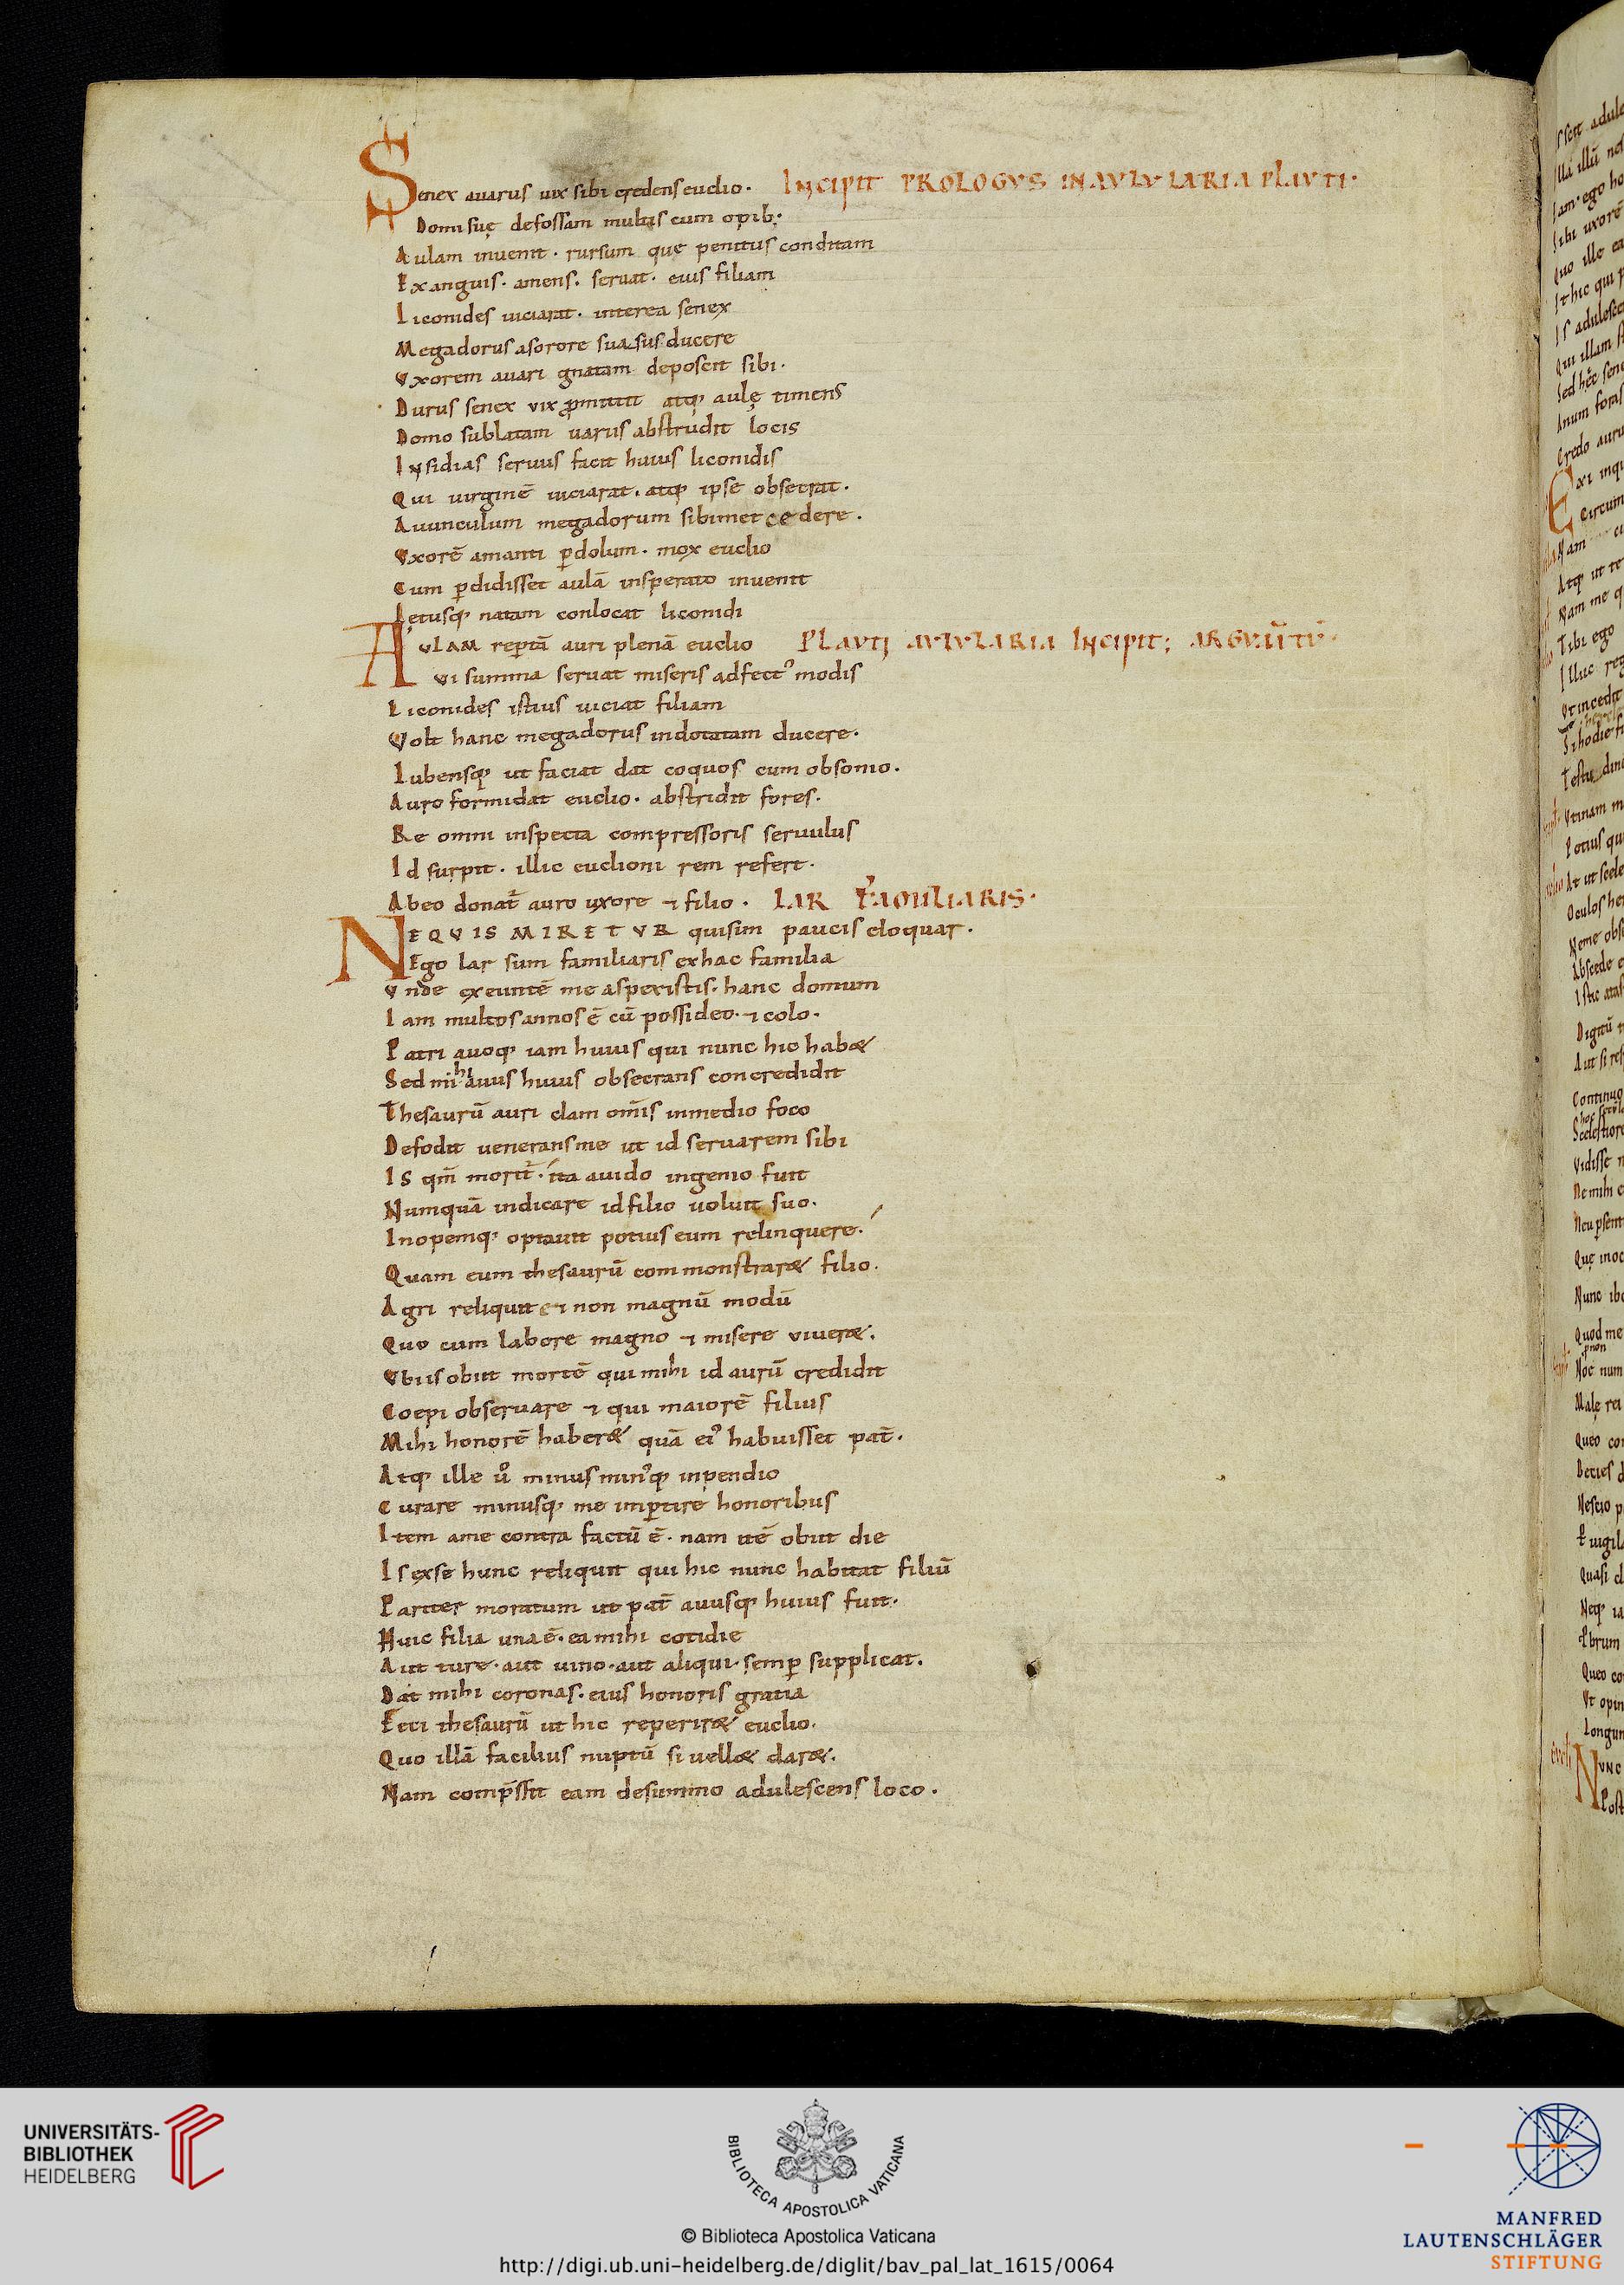 Senex auarus uix sibi credens euclio· INCIPIT PROLOGVS IN AVLVLARIA PLAVTI·
Domi suę defossam multis cum opib;
Aulam inuenit· rursum que penitus conditam
Exanguis· amens· seruat· eius filiam
Liconides uiciarat· interea senex
Megadorus a sorore sua sus ducere
Vxorem auari gnatam deposcit sibi·
Durus senex vix ꝓmittit atq; aulę timens
Domo sublatam uarus abstrudit locis
Insidias seruus facit huius liconidis
Qui uirginē uiciarat· atq; ipse obsecrat·
Auunculum megadorum sibimet cedere·
Vxorē amanti ꝑ dolum· mox euclio
Cum ꝑdidisset aulā insperato inuenit
Lętusq; natam conlocat liconidi
AVLAM repꝑtā auri plenā euclio PLAVTI AVLVLARIA INCIPIT; ARGVM̄TV̄·
Vi summa seruat miseris adfectꝰ modis
Liconides istius uiciat filiam
Volt hanc megadorus indotatam ducere·
Iubensq; ut faciat dat coquos cum obsonio·
Auro formidat euclio· abstridit fores·
Re omni inspecta compressoris seruulus
Id surpit· illic euclioni rem refert·
Abeo donat̄ auro uxore ⁊ filio· LAR FAMILIARIS·
NEQVIS MIRETVR qui sim paucis eloquar·
Ego lar sum familiaris ex hac familia
Vnde exeuntē me aspexistis· hanc domum
Iam multos annos ē cū possideo· ⁊ colo·
Patri auoq; iam huius qui nunc hic habet
Sed mihi auus huius obsecrans concredidit
Thesaurū auri clam om̄is in medio foco
Defodit uenerans me ut id seruarem sibi
Is qm̄ morit̄· ita auido ingenio fuit
Numquā indicare id filio uoluit suo·
Inopemq; optauit potius eum relinquere·
Quam eum thesaurū commonstraret filio·
Agri reliquit ei non magnū modū
Quo cum labore magno ⁊ misere viueret·
Vbi is obiit mortē qui mihi id aurū credidit
Coepi obseruare ⁊ qui maiorē filius
Mihi honorē haberet quā eiꝰ habuisset pat̄·
Atq; ille uͦ minus minꝰq; inpendio
Curare minusq; me imꝑtire honoribus
Item a me contra factū ē· nam itē obiit die
Is ex se hunc reliquit qui hic nunc habitat filiū
Pariter moratum ut pat̄ auusq; huius fuit·
Huic filia una ē· ea mihi cotidie
Aut ture· aut uino· aut aliqui· semꝑ supplicat·
Dat mihi coronas· eius honoris gratia
Feci thesaurū ut hic reperiret euclio·
Quo illā facilius nuptū si uellet daret·
Nam comp̄ssit eam de summo adulescens loco·
UNIVERSITÄTS-
BIBLIOTHEK
HEIDELBERG
BIBLIOTECA APOSTOLICA VATICANA
© Biblioteca Apostolica Vaticana
http://digi.ub.uni-heidelberg.de/diglit/bav_pal_lat_1615/0064
MANFRED
LAUTENSCHLÄGER
STIFTUNG